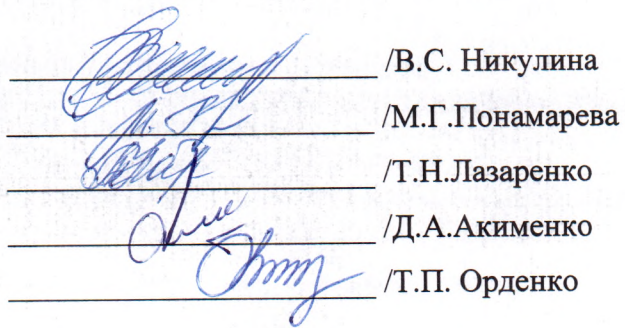 /В.С. Никулина
/М.Г.Понамарева
/Т.Н.Лазаренко
/Д.А.Акименко
/Т.П. Орденко